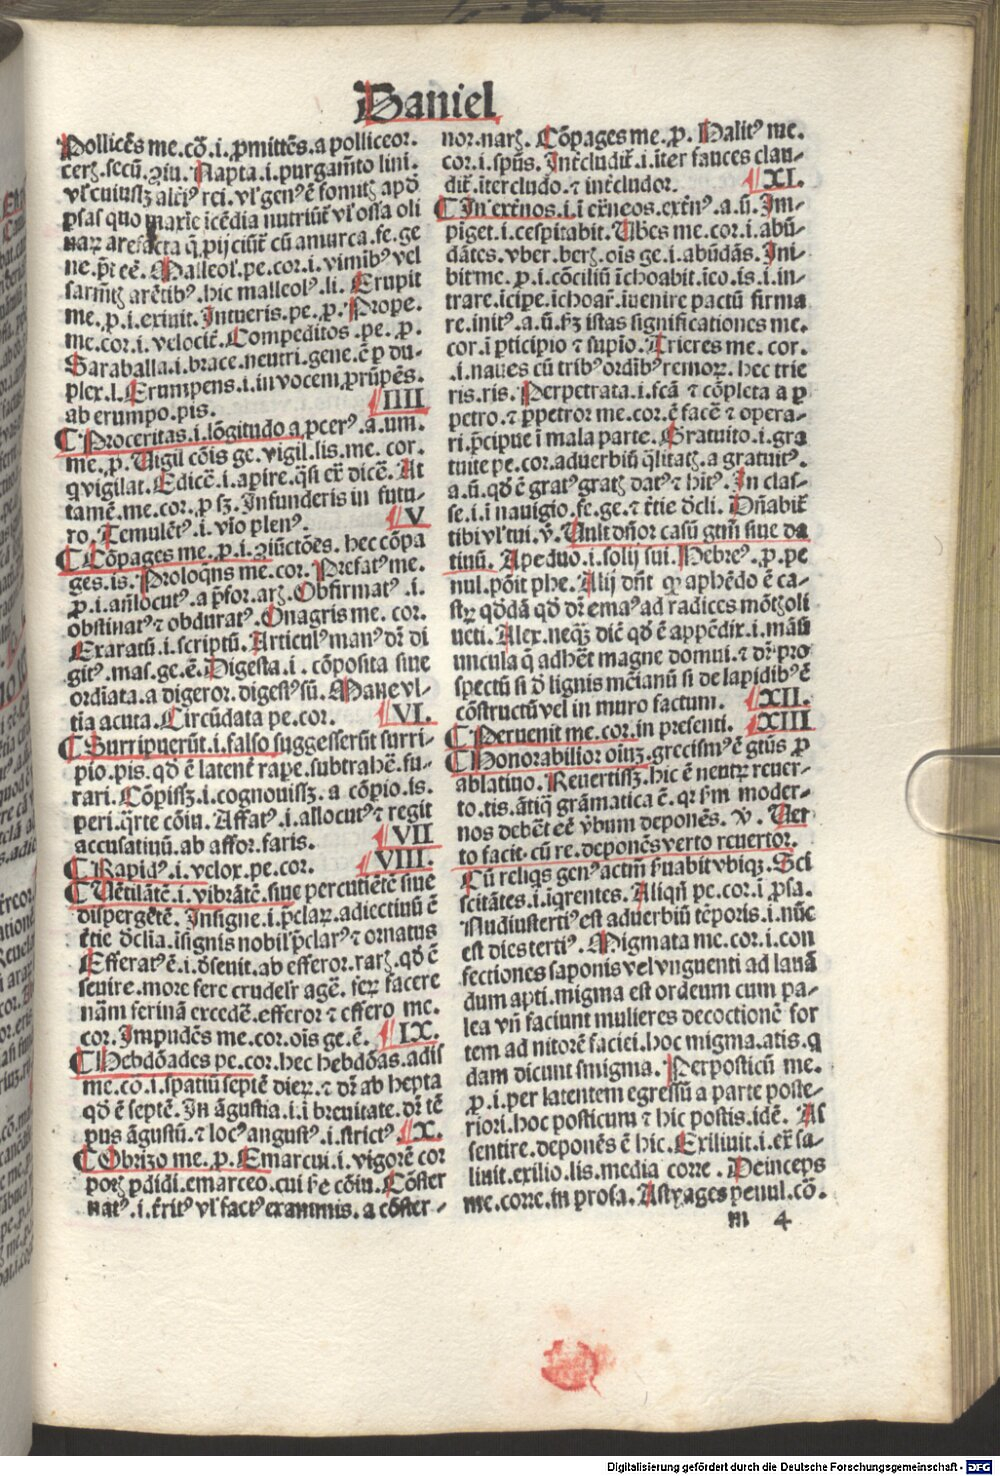 Daniel
Pollicēs me.cō.i.ꝓmittēs.a polliceor.
cerꝫ.secū.ꝯiu. Napta.i.purgamēto lini.
ne.p̄t eē. Malleol⁹.pe.cor.i.vimib⁹ vel
sarmētꝫ arētib⁹.hic malleol⁹.li. Erupit
me.ꝓ.i.exiuit. Intueris.pe.ꝓ. Prope.
me.cor.i.velocit̄. Compeditos.pe.ꝓ.
Saraballa.i.brace.neutri.gene.ē ꝑ du-
plex.l. Erumpens.i.in vocem ꝓrūpēs.
ab erumpo.pis. IIII
Proceritas.i.lōgitudo a ꝓcer⁹.a.um.
me.ꝓ. Uigil cōis ge.vigil.lis.me.cor.
q vigilat. Edicē.i.apire.q̄si ex̄ dicē. At
tamē.me.cor.ꝓ sꝫ. Infunderis in futu-
ro. Temulēt⁹.i.vīo plen⁹. V
Cōpages me.ꝓ.i.ꝯiūctōes.hec cōpa
ges.is. Proloqn̄s me.cor. Prefat⁹ me.
ꝓ.i.an̄locut⁹.a p̄for.arꝫ. Obfirmat⁹.i.
obstinat⁹ ⁊ obdurat⁹. Onagris me.cor.
Exaratū.i.scriptū. Articul⁹ man⁹ dr̄ di
git⁹.mas.ge.ē. Digesta.i.cōposita siue
ordīata.a digeror.digest⁹ sū. Mane vl-
tia acuta. Circūdata pe.cor. VI.
Surripuerūt.i.falso suggesserūt surri-
pio.pis.qd̄ ē latenē rape.subtrahē.fu-
rari. Cōpissꝫ.i.cognouissꝫ.a cōpio.is.
peri.q̄rte cōiu. Affat⁹.i.allocut⁹ ⁊ regit
accusatinū.ab affor.faris. VII
Rapid⁹.i.velox.pe.cor. VIII.
Uētilātē.i.vibrātē.siue percutiētē siue
dispergētē. Insigne.i.p̄claꝝ.adiectiuū ē
t̄tie d̄clīa.isignis nobil⁹ p̄clar⁹ ⁊ ornatus
Efferat⁹ ē.i.d̄seuit.ab efferor.rarꝫ.qd̄ ē
seuire.more fere crudelr̄ agē. seꝝ facere
nām ferinā excedē.efferor ⁊ effero me.
cor. Impudēs me.cor.ois ge.ē. IX.
Hebdōades pe.cor.hec hebdōas.adis
me.co.i.spatiū septē dieꝝ.⁊ dr̄ ab hepta
qd̄ ē septē. In āgustia.i.i breuitate.dr̄ tē
pus āgustū.⁊ loc⁹ angust⁹.i.strict⁹. X.
Obrizo me.ꝓ. Emarcui.i.vigorē cor
porꝫ ꝑdidi.emarceo.cui ſc̄e cōiu. Cōster
nat⁹.i.t̄rit⁹ vl̄ fact⁹ exanimis.a cōster-
nor.narꝫ. Cōpages me.ꝓ. Halit⁹ me.
cor.i.spūs. Int̄cludit̄.i.iter fauces clau-
dit̄.itercludo.⁊ int̄cludor. XI.
In ext̄nos.i.i ext̄neos.extn̄⁹.a.ū. Im-
piget.i.cespitabit. Ubes me.cor.i.abū-
dātes.vber.berꝫ.ois ge.i.abūdās. Ini-
bit me.ꝓ.i cōciliū īchoabit.ico.is.i.in-
trare.īcipe.īchoar̄.iuenire pactū firma
re.init⁹.a.ū.ſꝫ istas significationes me.
cor.i ꝑticipio ⁊ supīo. Trieres me.cor.
.i.naues cū trib⁹ ordib⁹ remoꝝ.hec trie
ris.ris. Perpetrata.i.fcā ⁊ cōpleta a ꝑ
petro.⁊ ꝑpetror me.cor.ē facē ⁊ opera-
ri.p̄cipue i mala parte. Gratuito.i.gra
tuite pe.cor.aduerbiū q̄litatꝫ.a gratuit⁹.
a.ū.qd̄ ē grat⁹ gratꝫ dat⁹ ⁊ hit⁹. In clas-
se.i.i nauigio.fe.ge.⁊ t̄tie d̄cli. Dn̄abit̄
tibi vl̄ tui.v̄. Uult dn̄or casū gtm̄ siue da
tinū. Apedno.i.solij sui. Hebre⁹.ꝓ.pe
nul.pōit phe. Alij dn̄t ꝙ aphēdo ē ca-
stꝝ qd̄dā qd̄ dr̄ ema⁹ ad radices mōtꝫ oli
ueti. Alex.neqꝫ dic̄ qd̄ ē appēdix.i.māsi
uncula q̄ adhēt magne domui.⁊ dr̄ pro
spectū si d̄ lignis mēianū si de lapidib⁹ ē
cōstructū vel in muro factum. XII.
Peruenit me.cor.in presenti. XIII
Honorabilior oiuꝫ.grecism⁹ ē gtūs ꝓ
ablatiuo. Reuertissꝫ.hic ē neutꝝ reuer-
to.tis.ātiq̄ grāmatica ē.qr ſm moder-
nos debēt eē v̄bum deponēs. v̄. Uer
to facit.cū re.deponēs verto reuertor.
Cū reliqs gen⁹ actm̄ ſuabit vbiqꝫ. Sci
scitātes.i.iq̄rentes. Aliqn̄ pe.cor.i ꝓsa.
Nudiustert⁹ est aduerbiū tēporis.i.nūc
est dies terti⁹. Migmata me.cor.i.con
fectiones saponis vel vnguenti ad lauā
dum apti.migma est ordeum cum pa-
lea vn̄ faciunt mulieres decoctionē for
tem ad nitorē faciei.hoc migma.atis.q
dam dicunt smigma. Perposticū me.
ꝓ.i.per latentem egressū a parte poste-
riori.hoc posticum ⁊ hic postis.idē. As
sentire.deponēs ē hic. Exiliuit.i.ex̄ sa-
liuit.exilio.lis.media corre. Deinceps
me.corre.in prosa. Astyages penul.cō.
m 4
Digitalisierung gefördert durch die Deutsche Forschungsgemeinschaft - DFG